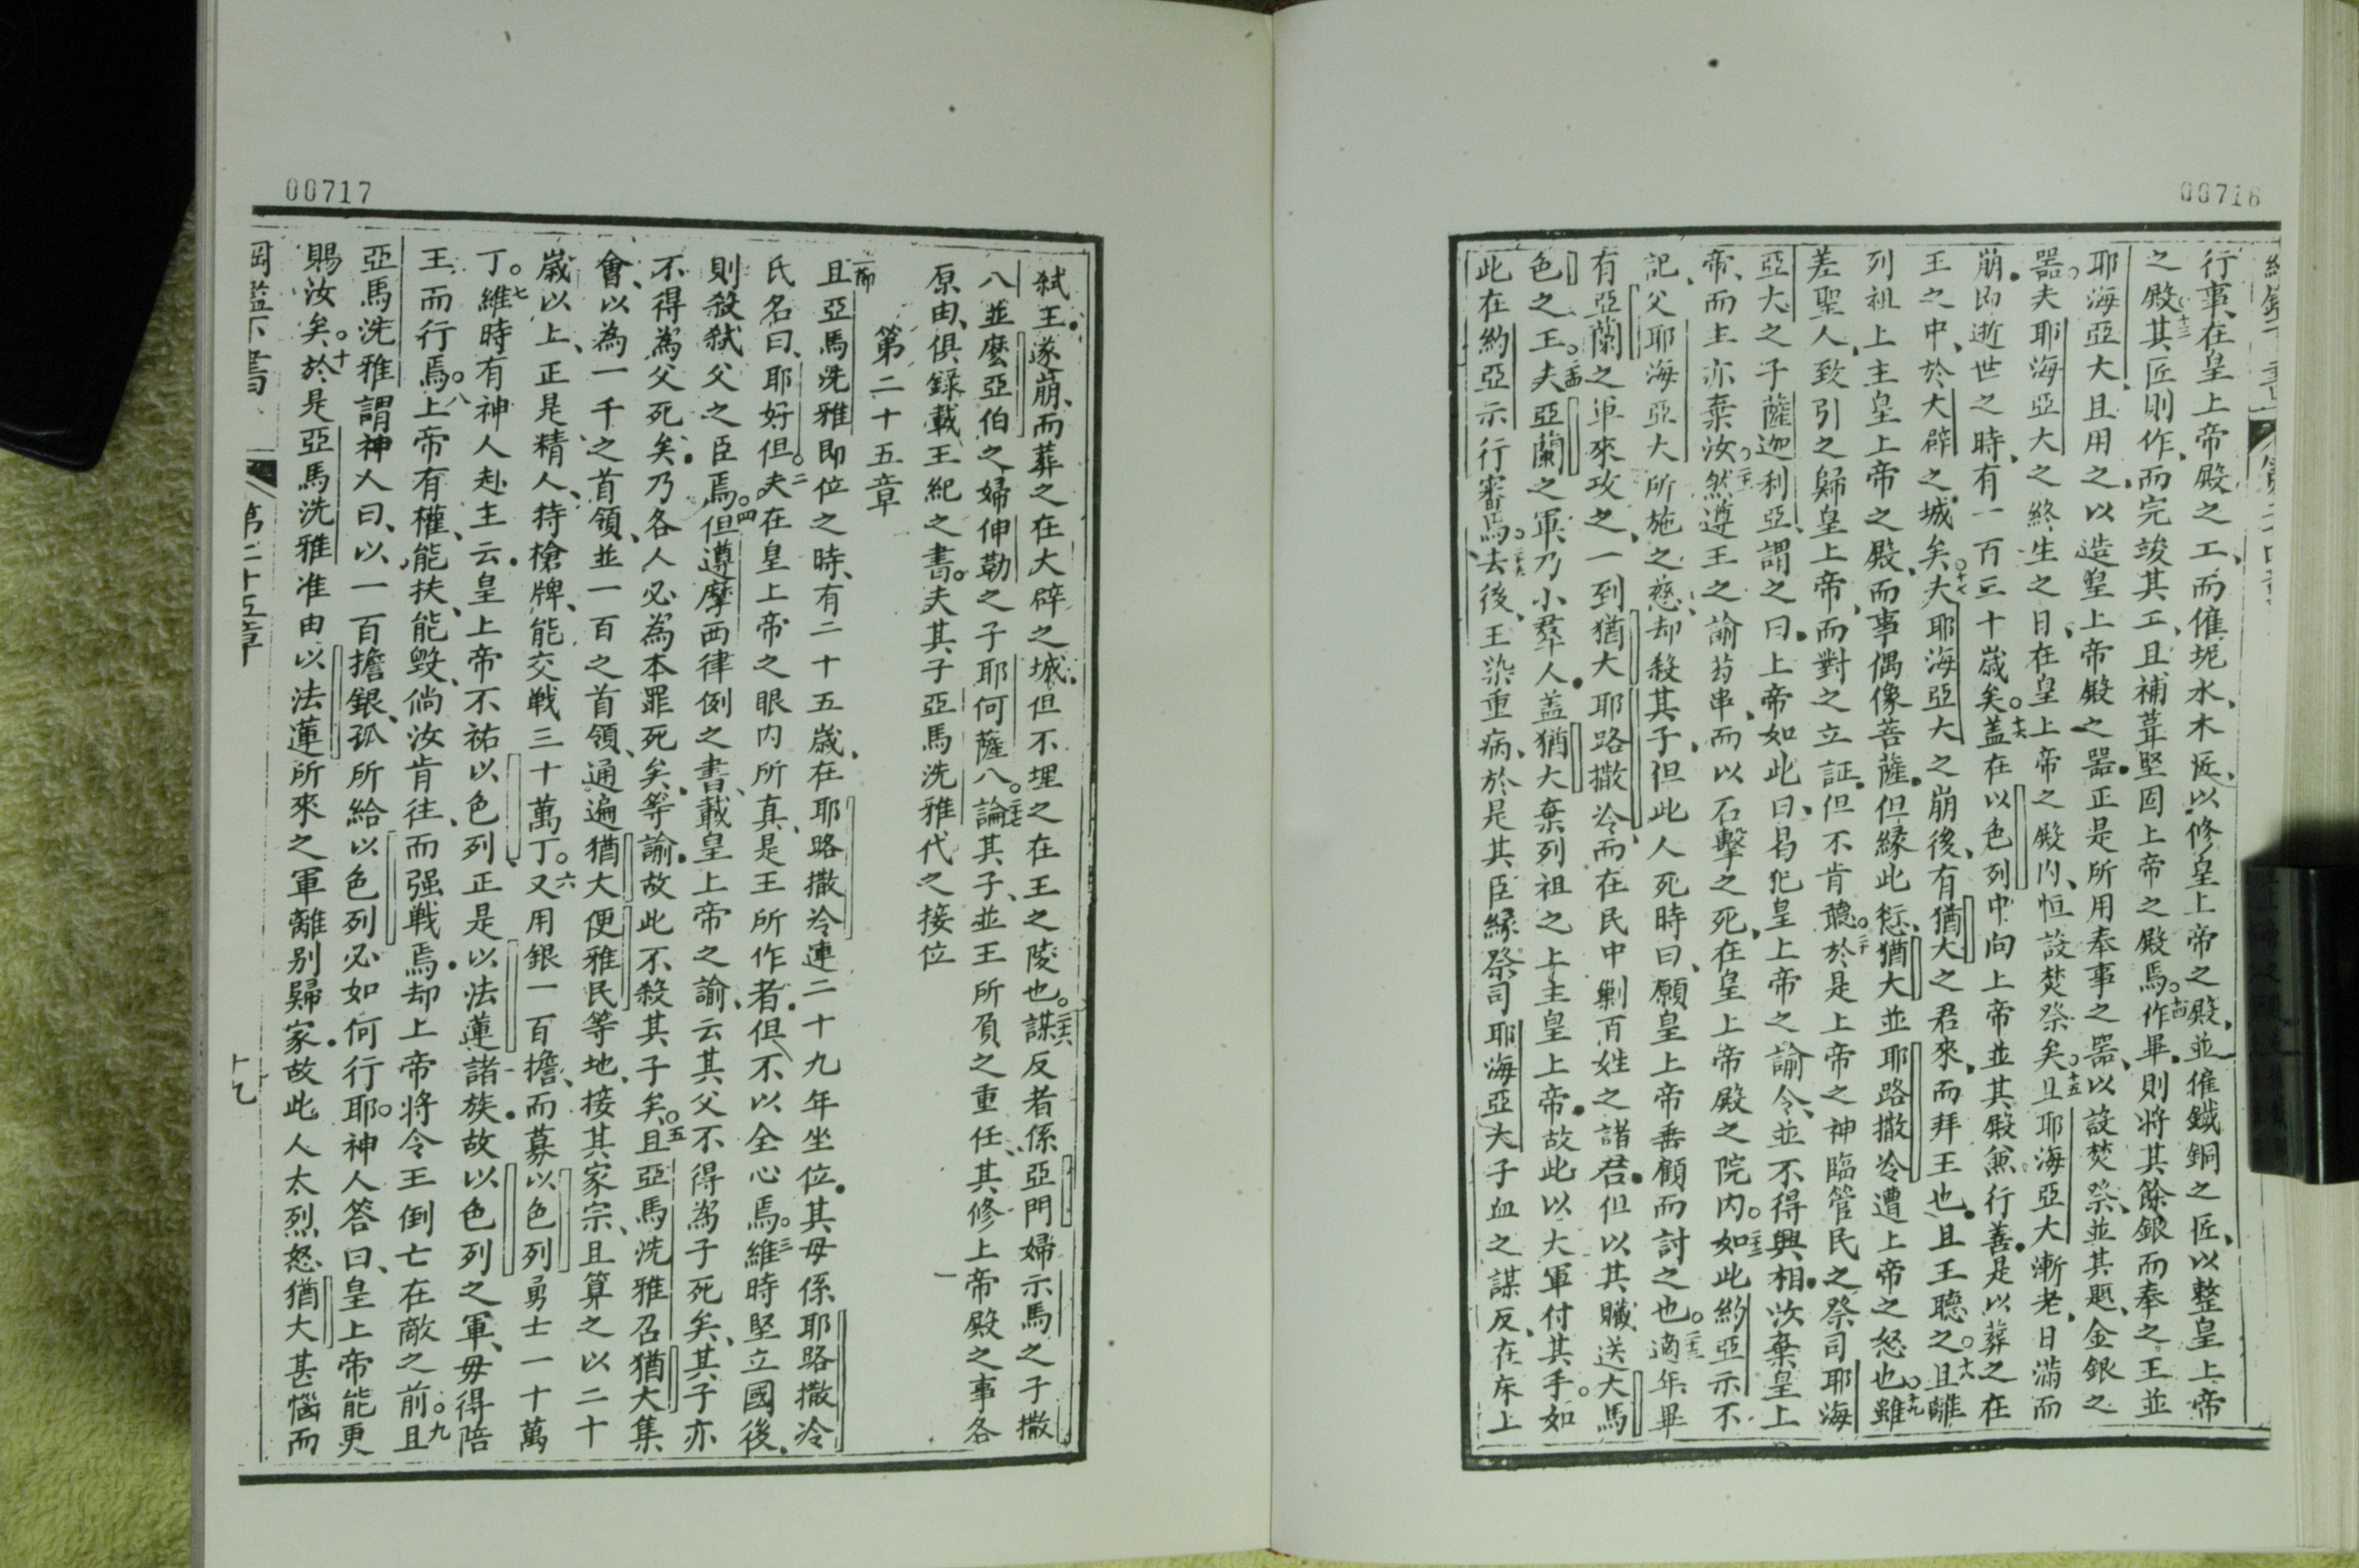 00716
行事、在皇上帝殿之工、而僱坭水、木匠、以修皇上帝之殿、並僱鐵銅之匠、以整皇上帝
之殿。十三其匠則作、而完竣其工、且補葺堅固上帝之殿焉。十四作畢、則將其餘銀而奉之王並
耶海亞大、且用之、以造皇上帝殿之器、正是所用奉事之器、以設焚祭、並其匙、金銀之
器。夫耶海亞大之終生之日、在皇上帝之殿內、恒設焚祭矣。十五且耶海亞大漸老、日滿而
崩、即逝世之時、有一百三十歲矣。十六蓋在以色列中向上帝並其殿兼行善、是以葬之在
王之中、於大辟之城矣。十七夫耶海亞大之崩後、有猶大之君來、而拜王也、且王聽之。十八且離
列祖上主皇上帝之殿、而事偶像菩薩、但緣此愆、猶大並耶路撒冷遭上帝之怒也。十九雖
差聖人、致引之歸皇上帝、而對之立証、但不肯聽。二十於是上帝之神臨管民之祭司耶海
亞大之子薩迦利亞、謂之曰、上帝如此曰、曷犯皇上帝之諭令、並不得興相、汝棄皇上
帝、而主亦棄汝。二十一然遵王之諭茍串、而以石擊之死、在皇上帝殿之院內。二十二如此約亞示不
記、父耶海亞大所施之慈、却殺其子、但此人死時曰、願皇上帝垂顧而討之也。二十三適年畢
有亞蘭之軍來攻之、一到猶大耶路撒冷、而在民中剿百姓之諸君、但以其贓送大馬
色之王。二十四夫亞蘭之軍乃小羣人、蓋猶大棄列祖之上主皇上帝、故此以大軍付其手。如
此在約亞示行審焉。二十五去後、王染重病、於是其臣緣祭司耶海亞大子血之謀反、在床上
00717
弒王、遂崩、而葬之在大辟之城、但不埋之在王之陵也。二十六謀反者係亞門婦示馬之子撒
八並麼亞伯之婦伸勒之子耶何薩八。二十七論其子、並王所負之重任、其修上帝殿之事各
原由、俱錄載王紀之書。夫其子亞馬洗雅代之接位
第二十五章
一節且亞馬洗雅即位之時、有二十五歲、在耶路撒冷連二十九年坐位、其母係耶路撒冷
氏名曰、耶好但。二夫在皇上帝之眼內所真、是王所作者、但不以全心焉。三維時堅立國後、
則殺弒父之臣焉。四但遵摩西律例之書、載皇上帝之諭、云其父不得為子死矣、其子亦
不得為父死矣、乃各人必為本罪死矣、等諭、故此不殺其子矣。五且亞馬洗雅召猶大集
會、以為一千之首領、並一百之首領、通遍猶大便雅民等地、接其家宗、且算之以二十
歲以上、正是精人、持槍牌、能交戰三十萬丁。六又用銀一百擔、而募以色列勇士一十萬
丁。七維時有神人赴主云、皇上帝不祐以色列、正是以法蓮諸族、故以色列之軍、毋得陪
王、而行焉。八上帝有權、能扶、能毀、倘汝肯往、而强戰焉、却上帝將令王倒亡在敵之前。九且
亞馬洗雅謂神人曰、以一百擔銀、孤所給以色列必如何行耶。神人答曰、皇上帝能更
賜汝矣。十於是亞馬洗雅准由以法蓮所來之軍離别歸家、故此人太烈怒猶大甚惱而
第二十五章
十九